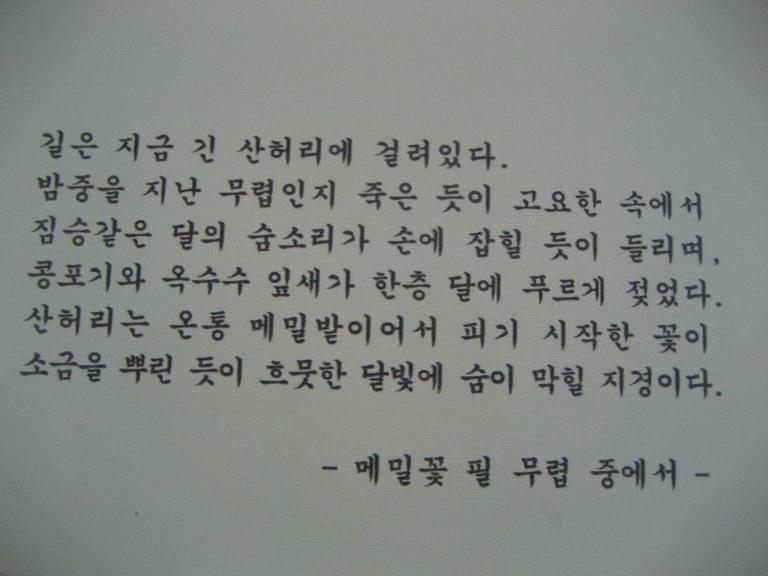 길은 지금 긴 산허리에 걸려있다.
밤중을 지난 무렵인지 죽은 듯이 고요한 속에서
짐승같은 달의 숨소리가 손에 잡힐 듯이 들리며,
콩포기와 옥수수 잎새가 한층 달에 푸르게 젖었다.
산허리는 온통 메밀밭이어서 피기 시작한 꽃이
소금을 뿌린 듯이 흐뭇한 달빛에 숨이 막힐 지경이다.
- 메밀꽃 필 무렵 중에서 -